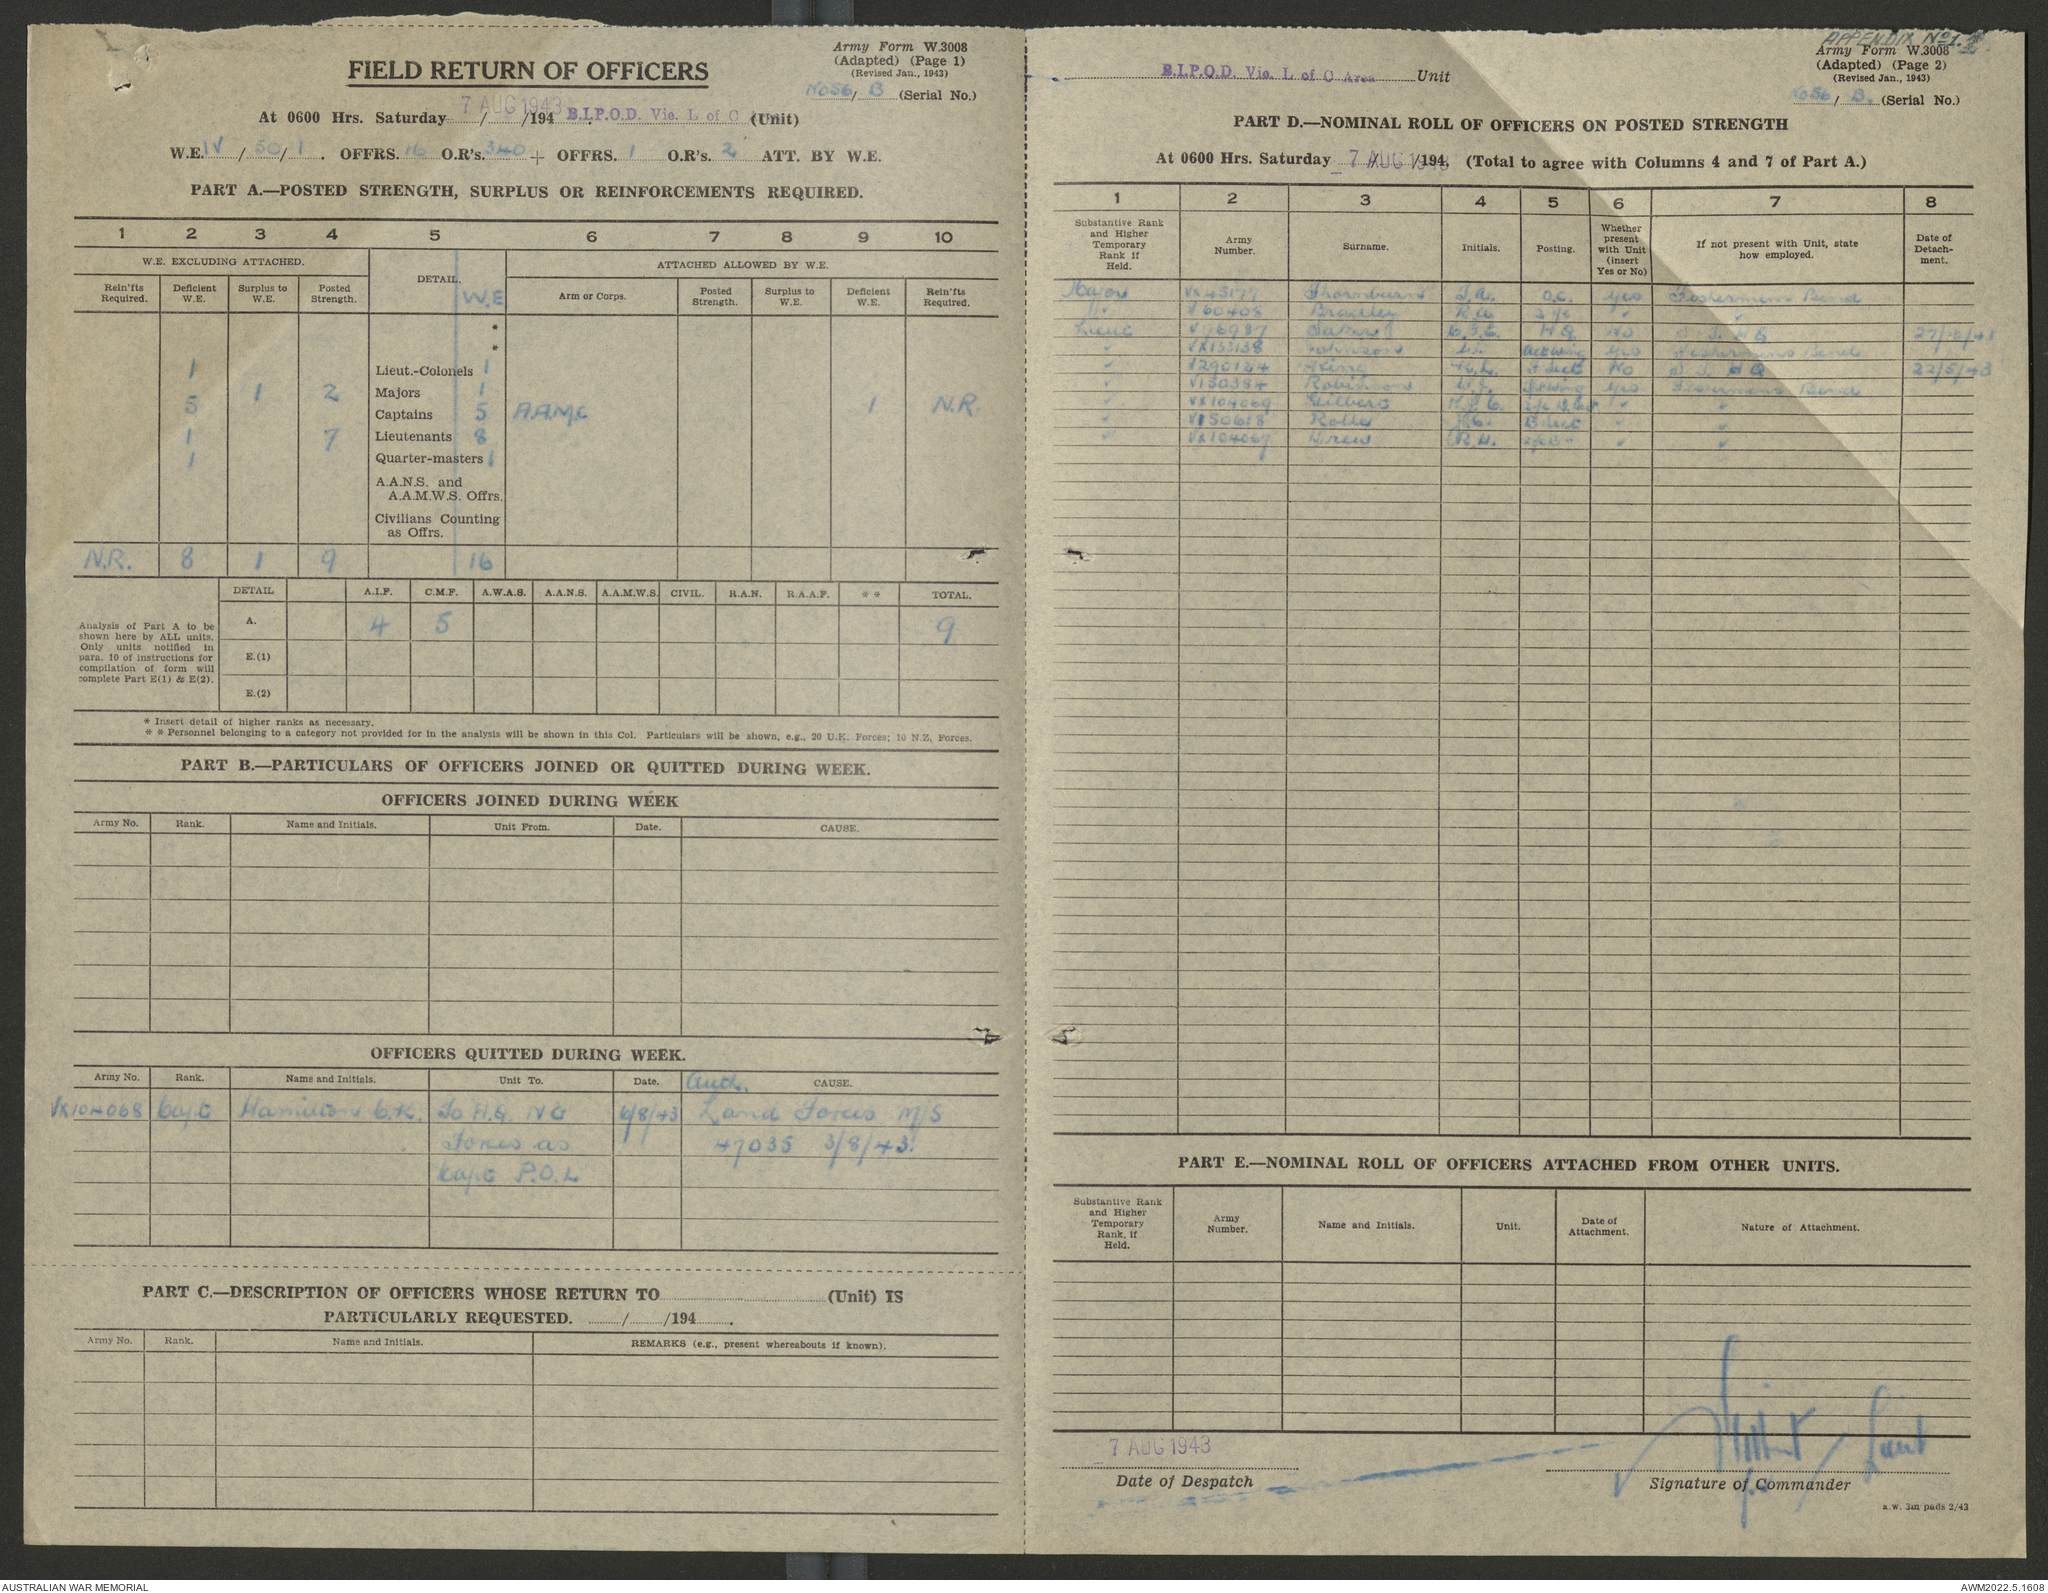 Army Form W.3008
(Adapted) (Page 1)
(Revised Jan., 1943)
No 56 / B (Serial No.)
FIELD RETURN OF OFFICERS
At 0600 Hrs. Saturday 7 AUG 1943 / /194 B.I.P.O.D. Vic. L of C (Unit)
W.E. IV / 50 / 1. OFFRS. 16 O.R's. 340 + OFFRS. 1 O.R's. 2 ATT. BY W.E.
PART A.—POSTED STRENGTH, SURPLUS OR REINFORCEMENTS REQUIRED.
1 2 3 4 5 6 7 8 9 10
W.E. EXCLUDING ATTACHED. DETAIL. W.E ATTACHED ALLOWED BY W.E.
Rein'fts Required. Deficient W.E. Surplus to W.E. Posted Strength. Arm or Corps. Posted Strength. Surplus to W.E. Deficient W.E. Rein'fts Required.
*
*
1 Lieut.-Colonels 1
1 2 Majors 1
5 Captains 5 A.A.M.C 1 N.R.
1 7 Lieutenants 8
1 Quarter-masters 1
A.A.N.S. and
A.A.M.W.S. Offrs.
Civilians Counting
as Offrs.
N.R. 8 1 9 16
DETAIL A.I.F. C.M.F. A.W.A.S. A.A.N.S. A.A.M.W.S. CIVIL. R.A.N. R.A.A.F. * * TOTAL.
A. 4 5 9
E.(1)
E.(2)
Analysis of Part A to be
shown here by ALL units.
Only units notified in
para. 10 of instructions for
compilation of form will
complete Part E(1) & E(2).
* Insert detail of higher ranks as necessary.
* * Personnel belonging to a category not provided for in the analysis will be shown in this Col. Particulars will be shown, e.g., 20 U.K. Forces; 10 N.Z. Forces.
PART B.—PARTICULARS OF OFFICERS JOINED OR QUITTED DURING WEEK.
OFFICERS JOINED DURING WEEK
Army No. Rank. Name and Initials. Unit From. Date. CAUSE.
OFFICERS QUITTED DURING WEEK.
Army No. Rank. Name and Initials. Unit To. Date. Auth. CAUSE.
VX104068 Capt Hamilton C.K. To H.Q. NG 6/8/43 Land Forces M/S
Forces as 47035 3/8/43.
Capt P.O.L
PART C.—DESCRIPTION OF OFFICERS WHOSE RETURN TO (Unit) IS
PARTICULARLY REQUESTED. / /194 .
Army No. Rank. Name and Initials. REMARKS (e.g., present whereabouts if known).
APPENDIX No 1.
Army Form W.3008
(Adapted) (Page 2)
(Revised Jan., 1943)
No 56 / B. (Serial No.)
B.I.P.O.D. Vic. L of C Area Unit
PART D.—NOMINAL ROLL OF OFFICERS ON POSTED STRENGTH
At 0600 Hrs. Saturday 7 AUG 1943 /194. (Total to agree with Columns 4 and 7 of Part A.)
1 2 3 4 5 6 7 8
Substantive Rank and Higher Temporary Rank if Held. Army Number. Surname. Initials. Posting. Whether present with Unit (insert Yes or No) If not present with Unit, state how employed. Date of Detachment.
Major VX45177 T.A. O.C. Yes Fishermens Bend
V60408 Bradley R.A. 2 i/c
Lieut V76987 H.Q No
VX133138 Johnson Yes Fishermens Bend
V290124 King K.L. No 22/5/43
V150384 Robinson Yes Fishermens Bend
VX104069 Gilbert
V150618
VX104067 Drew R.H.
PART E.—NOMINAL ROLL OF OFFICERS ATTACHED FROM OTHER UNITS.
Substantive Rank and Higher Temporary Rank, if Held. Army Number. Name and Initials. Unit. Date of Attachment. Nature of Attachment.
7 AUG 1943
Date of Despatch
Lieut
Signature of Commander
a.w. 3m pads 2/43
AUSTRALIAN WAR MEMORIAL
AWM2022.5.1608